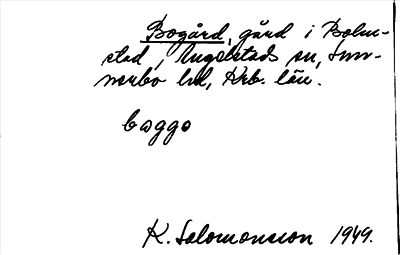 Bogård, gård i Bolm-
stad, Angelstads sn, Sun-
nerbo hd, Krb. län.
boggo
K. Salomonsson 1949.